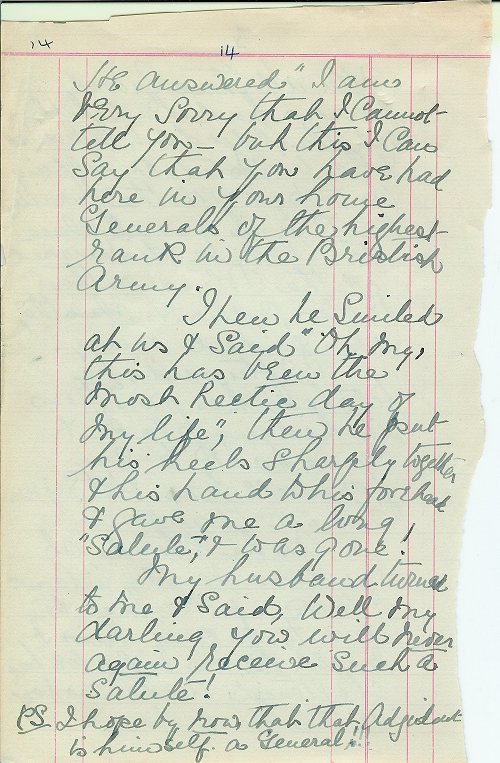 14
14
He answered "I am
very Sorry that I Cannot
tell you – but this I Can
Say that you have had
here in your home
Generals of the highest
rank in the British
Army.
Then he Smiled
at us & Said "Oh my,
this has been the
most hectic day of
my life", then he put
his heels Sharply together
& his hand to his forehead
& gave me a long,
"Salute", & was gone!
My husband turned
to me & Said, Well my
darling you will never
again receive Such a
Salute!
PS. I hope by now that that Adjidant
is himself a General!!